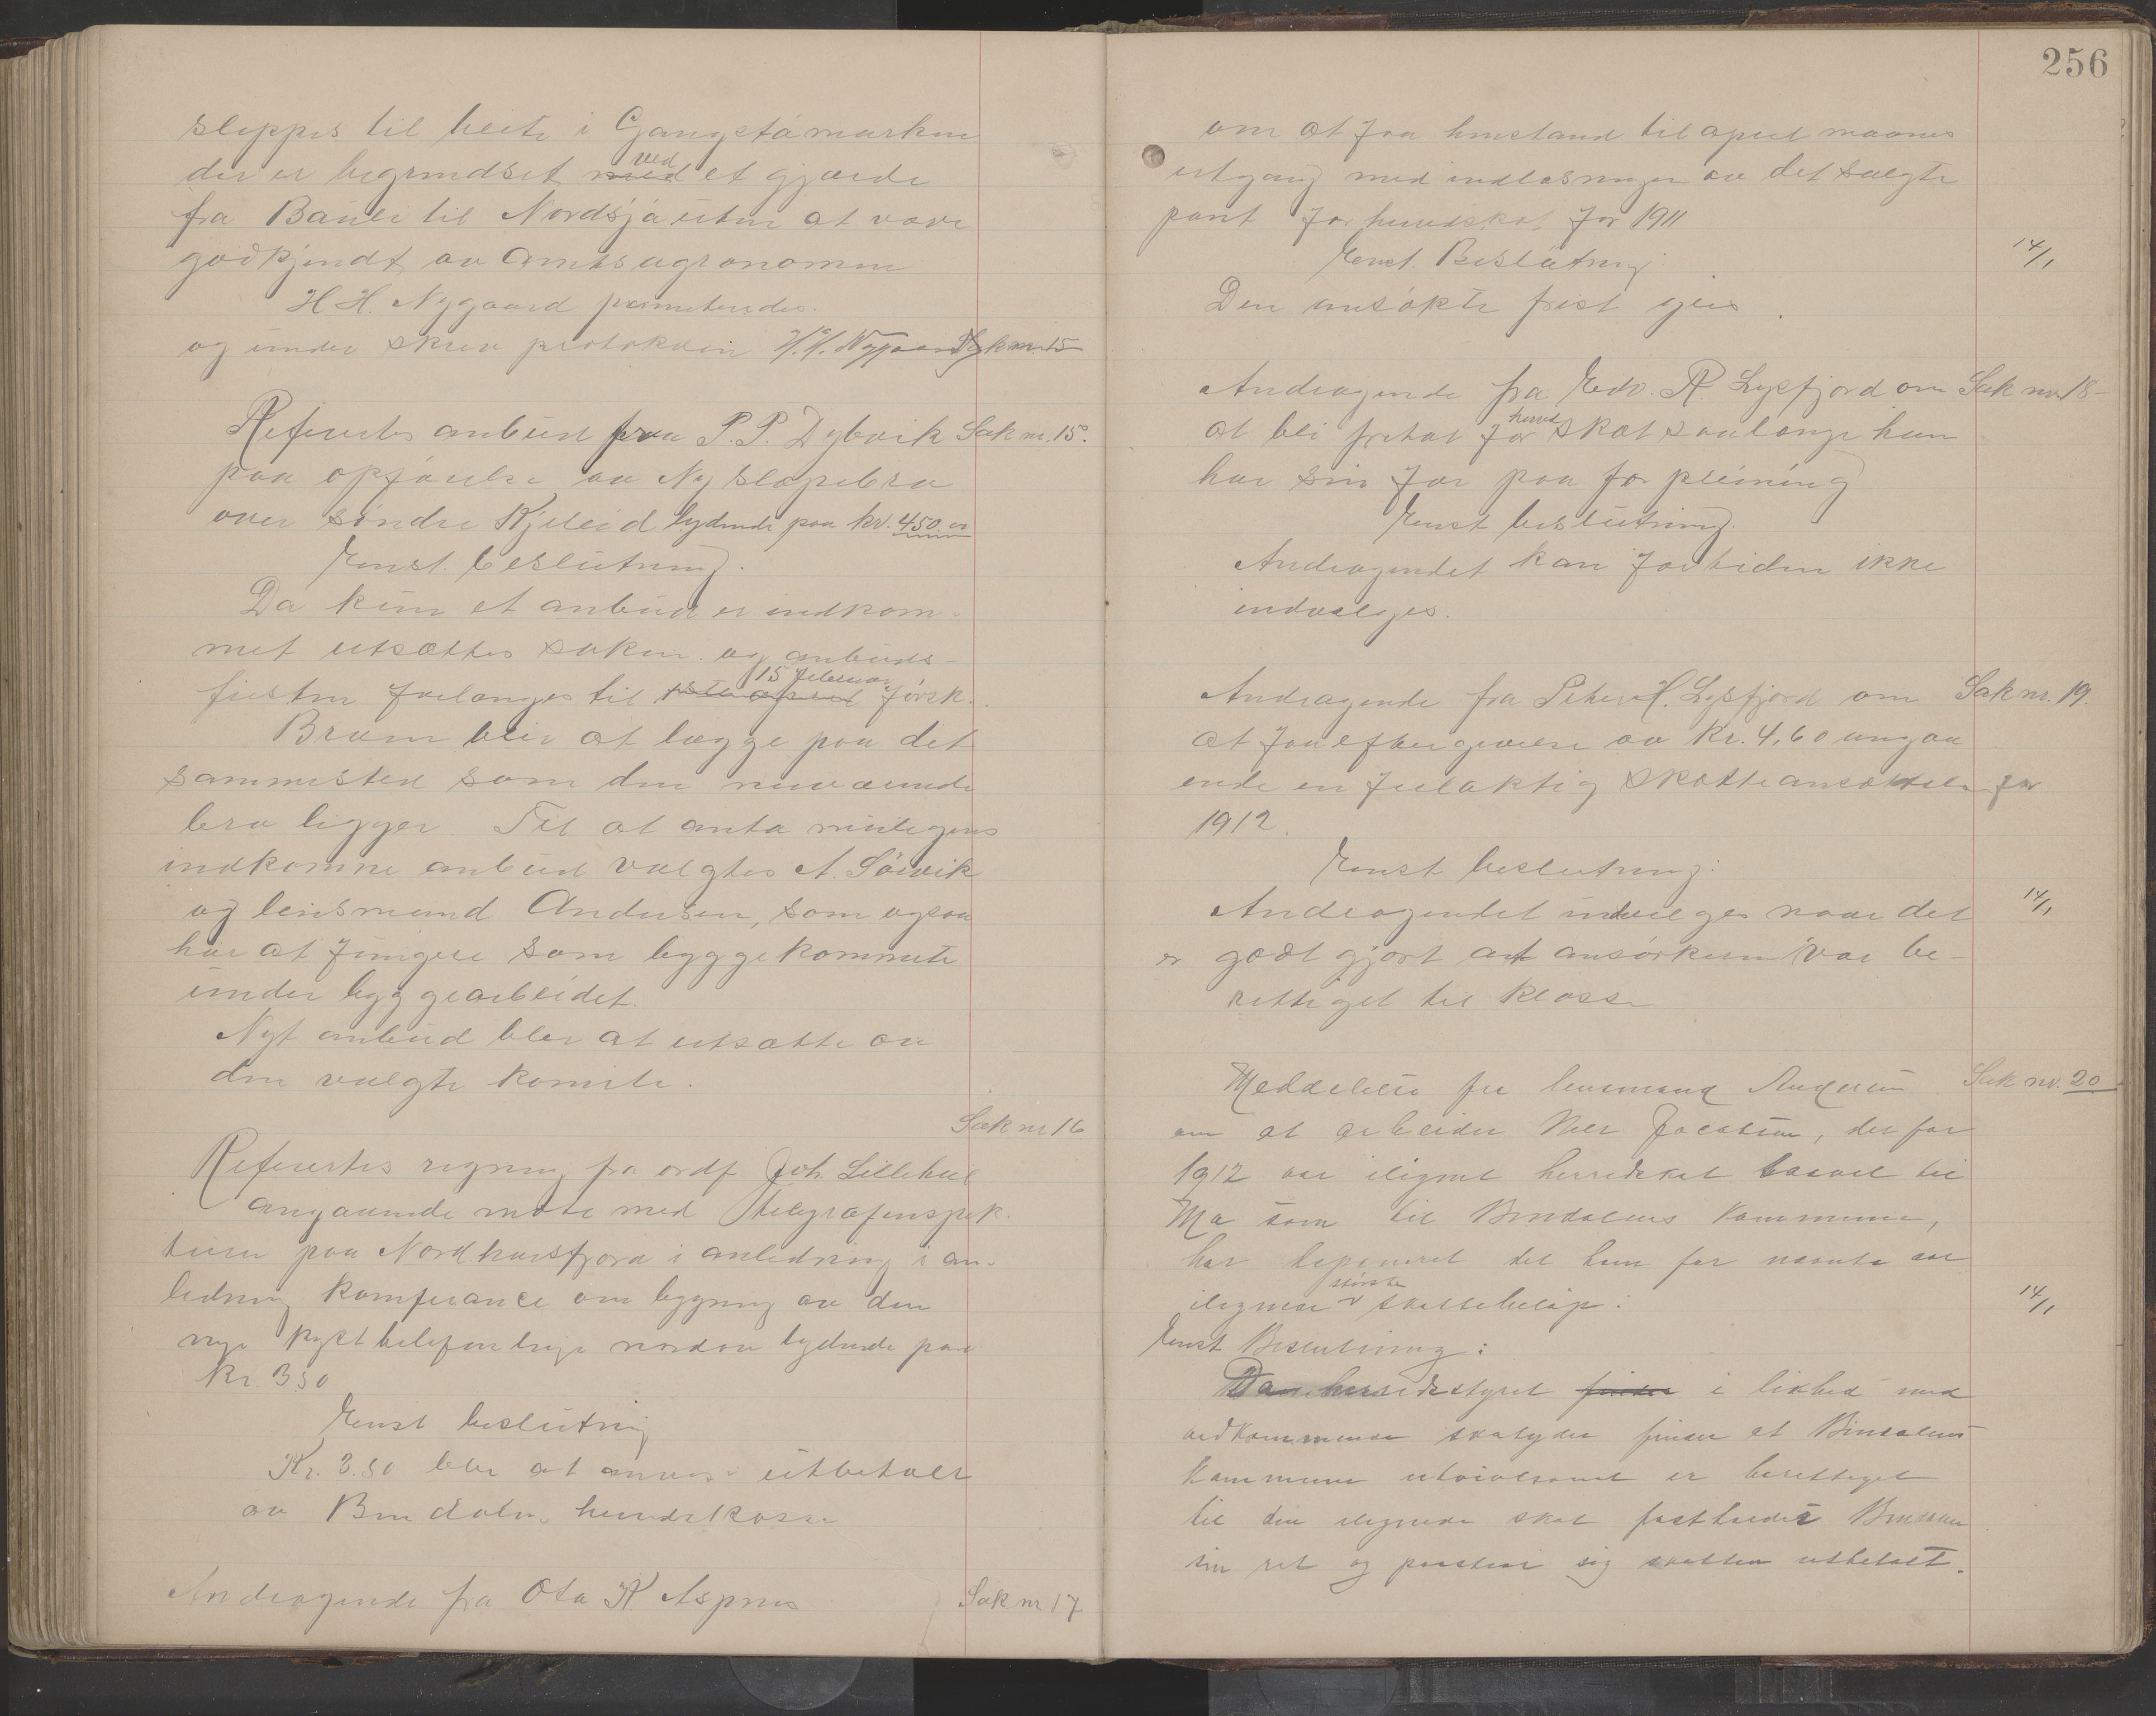 sleppes til beite i Gangstámarken
der er begrændset ved et gjærde
fra Bauli til Nordsjá uten at være
godkjendt av amtsagronomen
H. H. Nygaard permiteredes.
og under skrev protokolen H. H. Nygaard Sak nr. 15
Refertes anbud fra P. P. Dybvik Sak nr. 15.
paa opførelse av Ny slæpebro
over søndre Kjeleid lydende paa kr. 450.00
Enst. beslutning.
Da kun et anbud er indkom-
met utsættes saken. og anbuds-
fristen forlænges til 1ste april 15 februar førstk.
Broen blir at lægge paa det
sammested som den nuværende
bro ligger. Til at anta muligens
indkomne anbud valgtes A. Søivik
og lensmand Andersen, som ogsaa
har at fungere som byggekomite
under byggearbeidet.
Nyt anbud blir at utsætte av
den valgte komite.
Sak nr 16
Refertes regning fra ordf Joh. Lilleheil
angaaende møte med telegrafinspek-
tøren paa Nordhorsfjord i anledning i an-
ledning komferance om bygning av den
nye kysttelefonlinje nordov lydende paa
Kr. 3.50
Enst beslutning
Kr. 3.50 blir at anvise utbetalt
av Bindalens herredskasse
Andragende fra Ola K. Aspnes Sak nr 17
256
om at faa henstand til april maaneds
utgang med indløsningen av det solgte
pant for herredskat for 1911
Enst. Beslutning: 14/1
Den ansøkte frist gives.
Andragende fra Edv. R. Lysfjord om Sak nr. 18
at bli fritat for herred skat saalænge han
har sin far paa forpleining
Enst beslutning.
Andragendet kan for tiden ikke
indvælges.
Andragende fra Peter H. Lysfjord om Sak nr. 19.
at faa eftergivelse av Kr. 4,60 angaa
ende en feilaktig skatteansættelse for
1912.
Enst beslutning:
Andragendet indvilges naar det 14/1
er godtgjort at ansøkeren var be-
rettiget til klasse
Meddelelse fra lensmand Andersen Sak nr. 20
om at arbeider Jacobsen, der for
1912 var ilignet herredskat saavel til
som til Bindalens kommune,
har deponeret det ham for nævnte aar
ilignede største skattebeløp:
14/1
Enst Beslutning:
Da herredsstyret finder i likhed med
vedkommende skatyder finder at Bindalens
kommune utvivlsomt er berettiget
til den ilignede skat fastholder Bindalen
sin ret og paastaar sig skatten utbetalt.